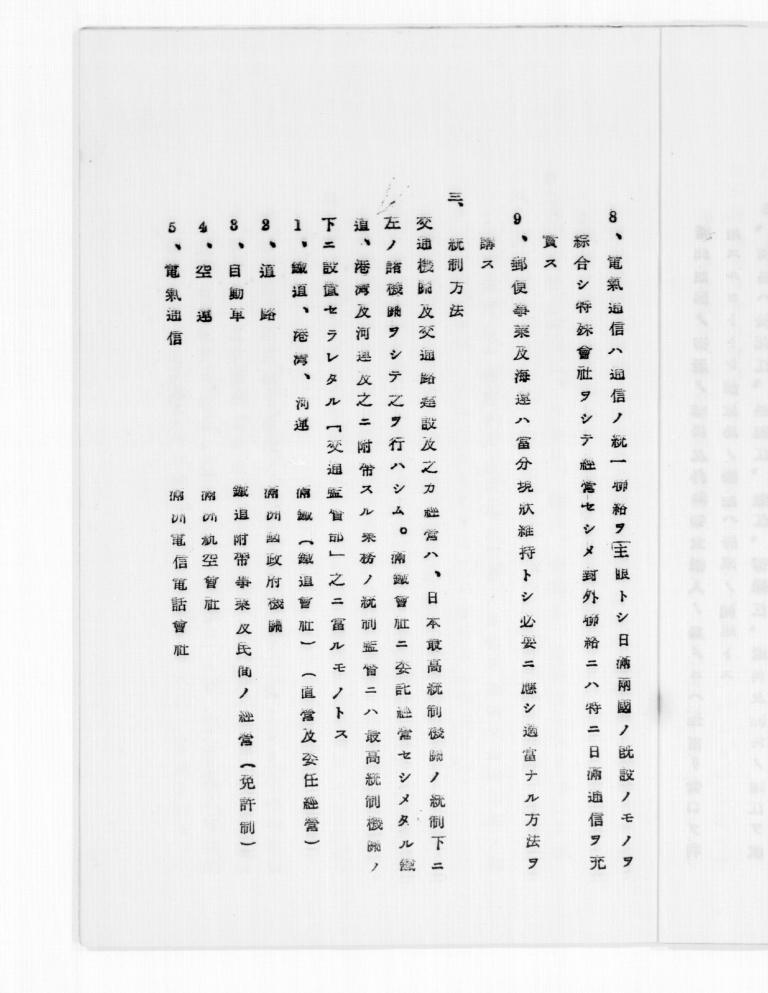 8、電氣通信ハ通信ノ統一聯絡ヲ主眼トシ日滿兩國ノ既設ノモノヲ
綜合シ特殊會社ヲシテ經營セシメ對外聯絡ニハ特ニ日滿通信ヲ充
實ス
9、郵便事業及海運ハ當分現狀維持トシ必要ニ應シ適當ナル方法ヲ
講ス
三、統制方法
交通機關及交通路建設及之カ經營ハ、日本最高統制機關ノ統制下ニ
左ノ諸機關ヲシテ之ヲ行ハシム。滿鐵會社ニ委託經營セシメタル鐵
道、港灣及河運及之ニ附帶スル業務ノ統制監督ニハ最高統制機關ノ
下ニ設置セラレタル「交通監督部」之ニ當ルモノトス
1、鐵道、港灣、河運 滿鐵(鐵道會社)(直營及委任經營)
2、道路 滿洲國政府機關
3、自動車 鐵道附帶事業及民間ノ經營(免許制)
4、空運 滿洲航空會社
5、電氣通信 滿洲電信電話會社